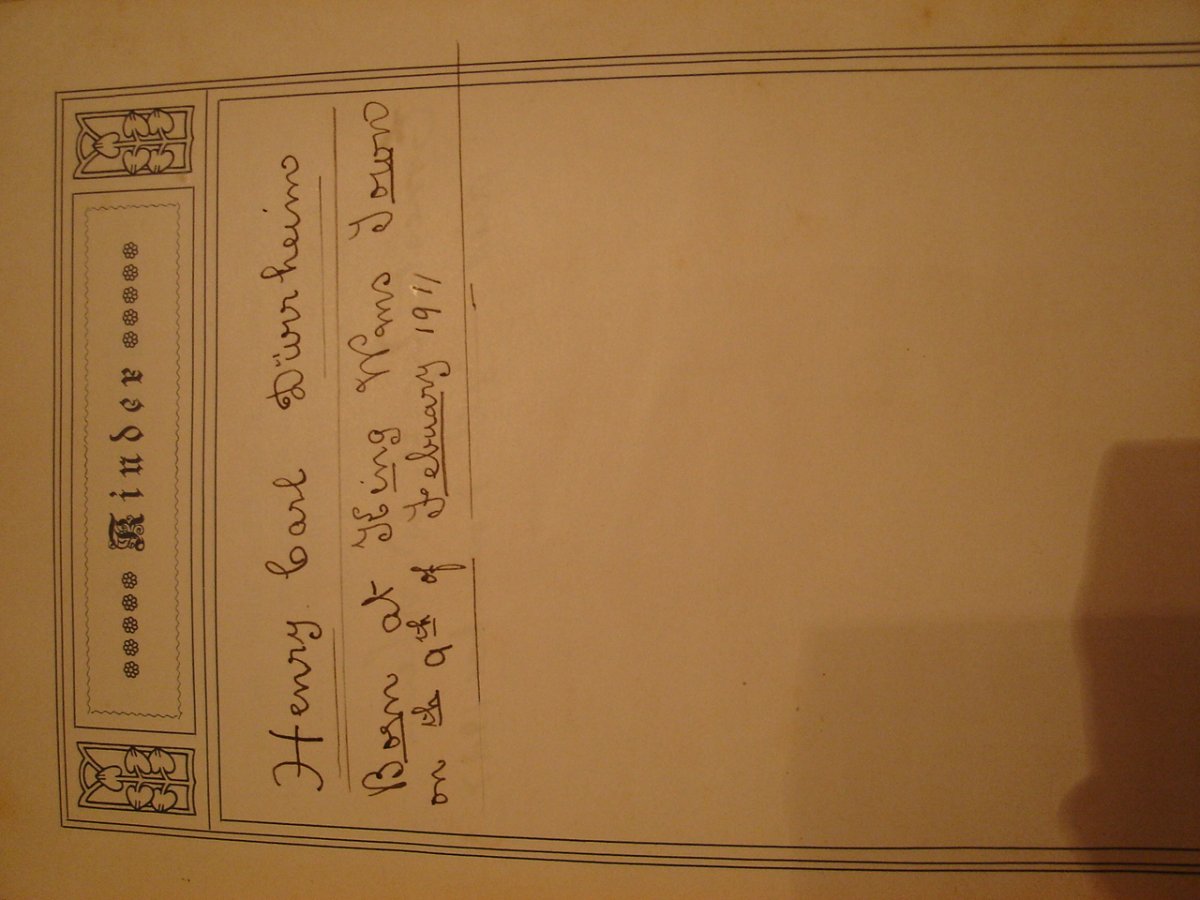 Kinder
Henry Carl Düurheim
Born at King Wms Town
on th 9th of Febuary 1911